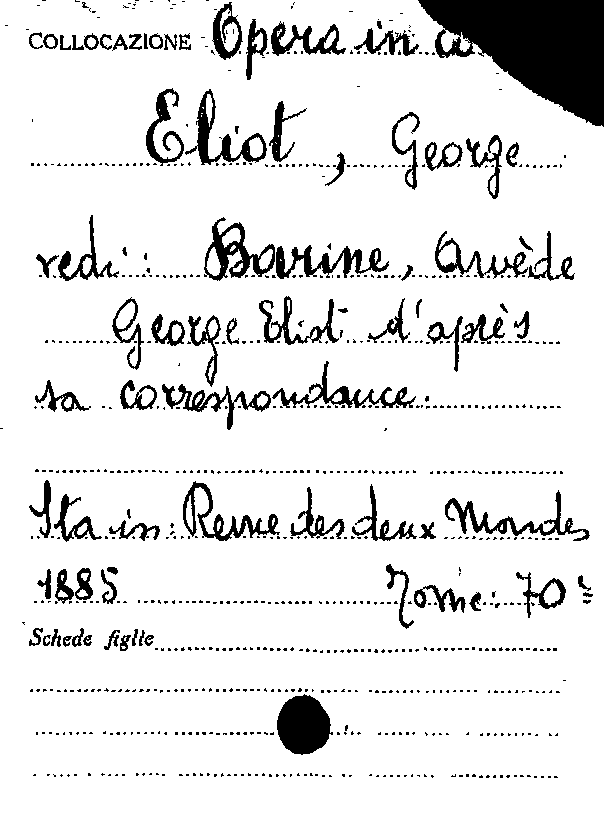 COLLOCAZIONE Opera in
Eliot, George
vedi: Barine, Arvède
George Eliot d'après
sa correspondance.
Sta in: Revue des deux Mondes
1885 Tome: 70
Schede figlie